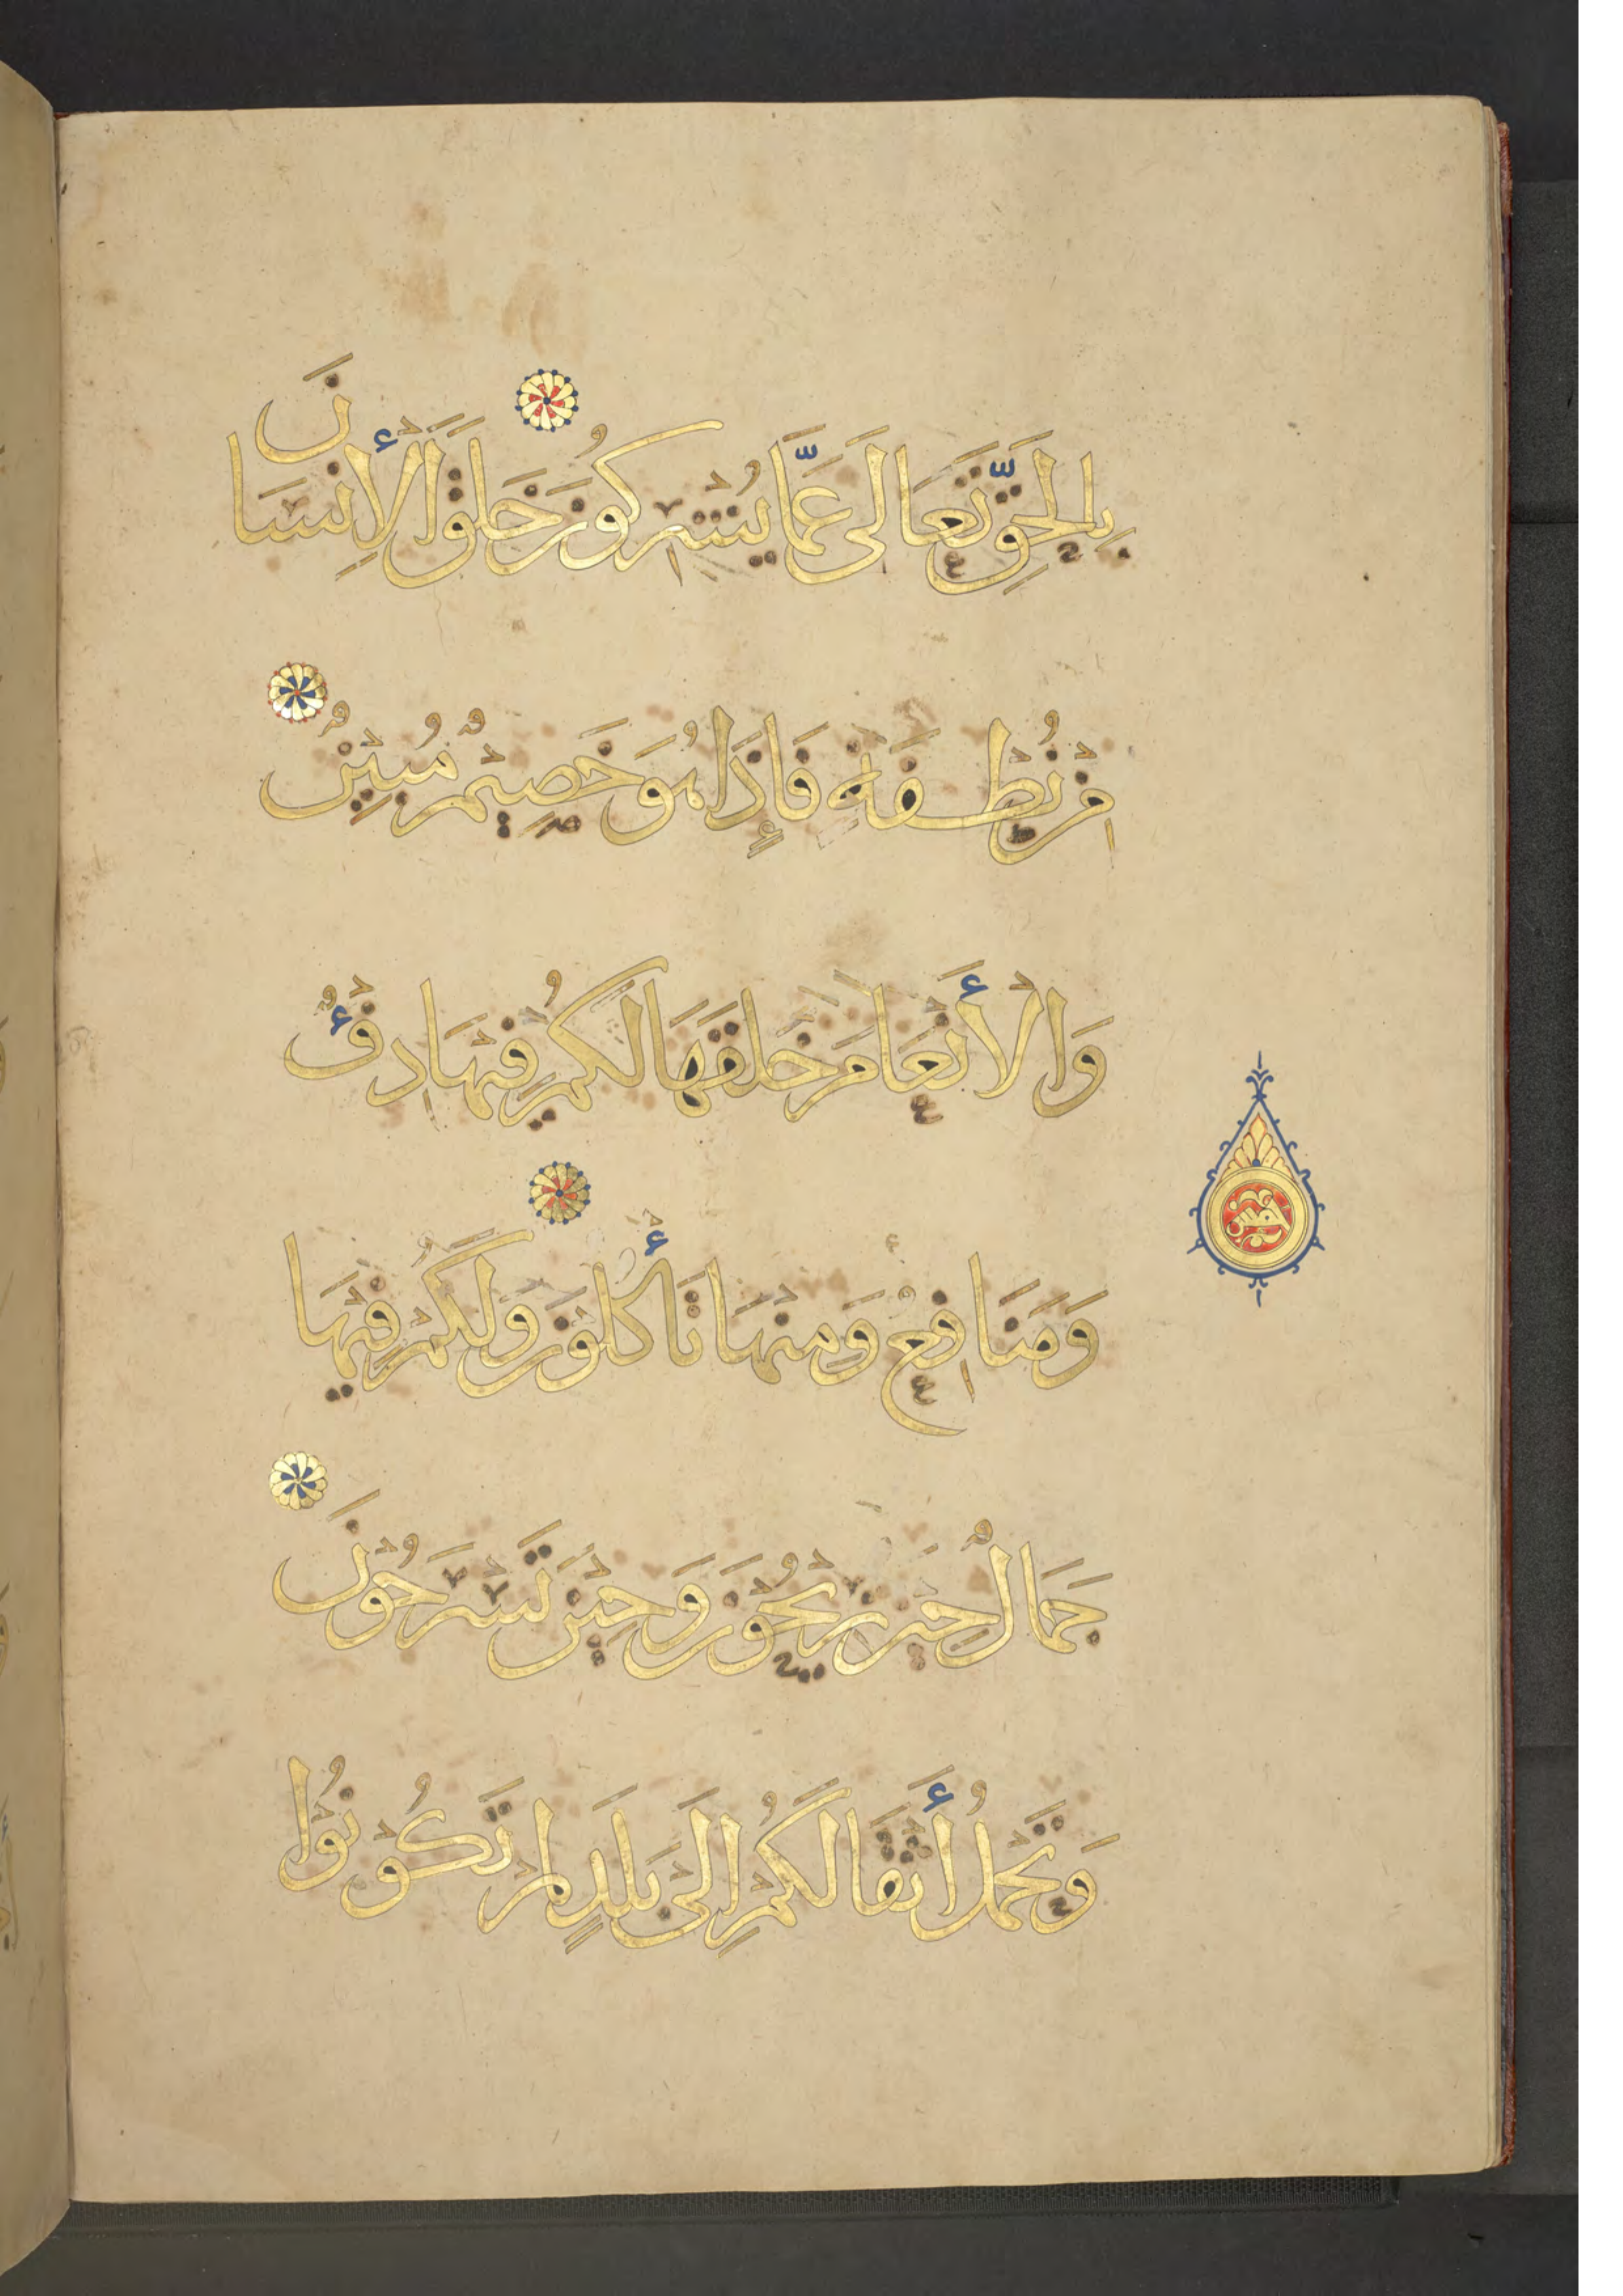 بِالْحَقِّ تَعَالَى عَمَّا يُشْرِكُونَ خَلَقَ الْأِنسَانَ
مِن نُطْفَةٍ فَإِذَا هُوَ خَصِيمٌ مُبِينٌ
وَالْأَنْعَامَ خَلَقَهَا لَكُمْ فِيهَا دِفْءٌ
وَمَنَافِعُ وَمِنْهَا تَأْكُلُونَ وَلَكُمْ فِيهَا
جَمَالٌ حِينَ تُرِيحُونَ وَحِينَ تَسْرَحُونَ
وَتَحْمِلُ أَثْقَالَكُمْ إِلَى بَلَدٍ لَمْ تَكُونُوا
خمس